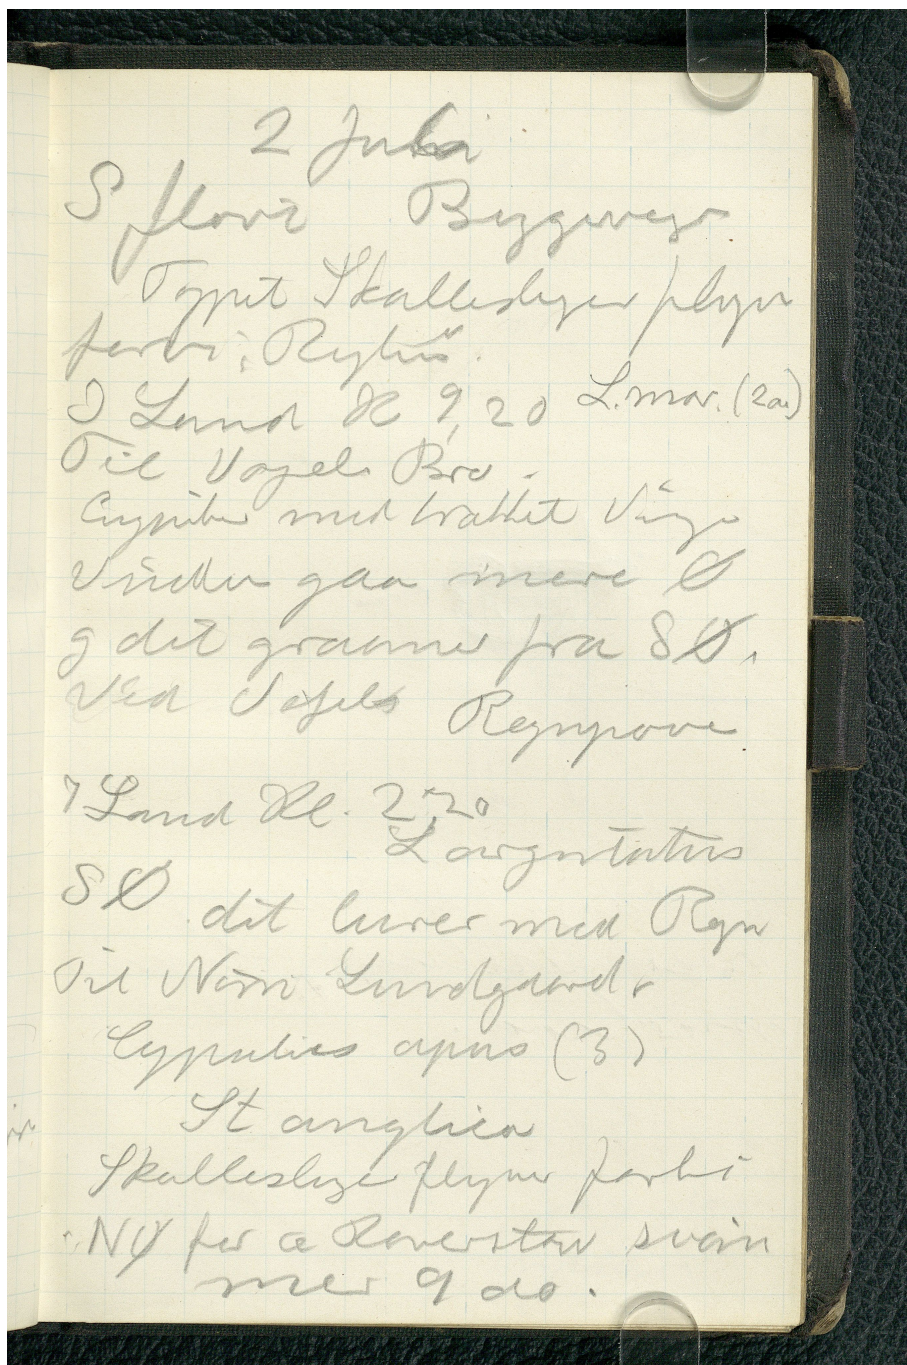 2 Juli
S flovt Byggeveje
Toppet Skallesluger flyver
forbi; Rylus.
I Land Kl 9,20 L. mar. (2 ad)
Til Vogels Bro.
med trættet Vinge
Vinden gaa mere Ø
og det graaner fra SØ.
Ved Vejels Regnprove
I Land Kl. 2,20
L argentatus
SØ det lurer med Regn
Til Nørre Lundgaard.
Cypselus apus (3)
St anglica
Skallesluge flyver forbi
NØ for svøm
mer 9 do.